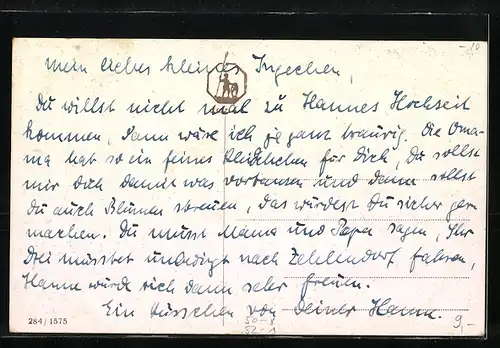 Mein liebes kleines Ingechen,
Du willst nicht mal zu Hannes Hochzeit
kommen, dann wäre ich ja ganz traurig. Die Oma-
ma hat so ein feines Kleidchen für Dich, Du sollst
mir doch damit was vortanzen und dann sollst
Du auch Blumen streuen, das würdest Du sicher gern
machen. Du musst Mama und Papa sagen, Ihr
Drei müsstet unbedingt nach Zehlendorf fahren,
Hanne würde sich dann sehr freuen.
Ein Küsschen von Deiner Hanne.
284/1575
50-8
52-1
9,-
-10